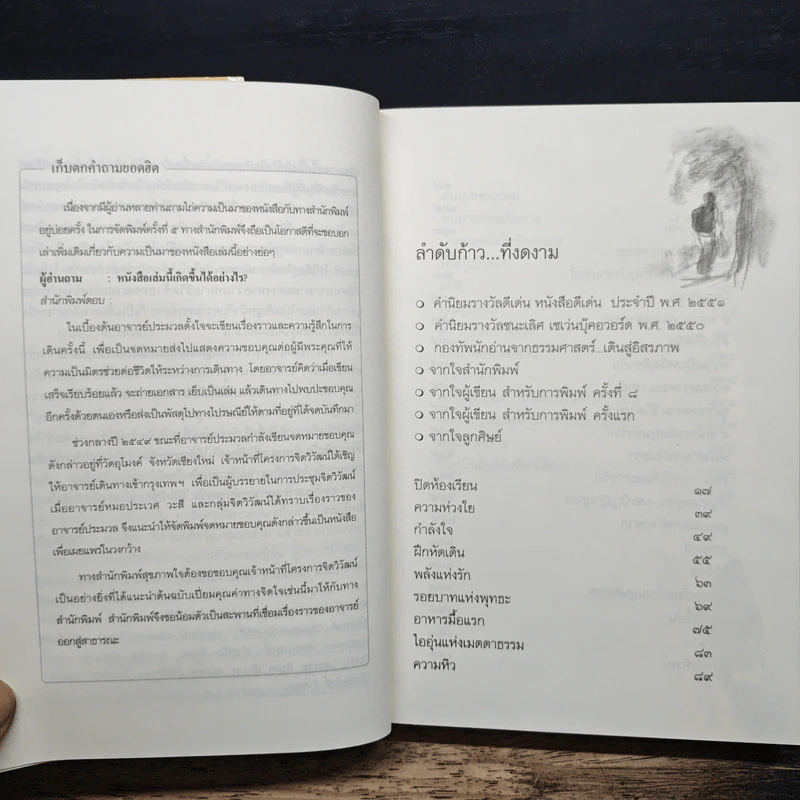 เก็บตกคำถามยอดฮิต
เนื่องจากมีผู้อ่านหลายท่านถามไถ่ความเป็นมาของหนังสือกับทางสำนักพิมพ์
อยู่บ่อยครั้ง ในการจัดพิมพ์ครั้งที่ ๕ ทางสำนักพิมพ์จึงถือเป็นโอกาสดีที่จะขอบอก
เล่าเพิ่มเติมเกี่ยวกับความเป็นมาของหนังสือเล่มนี้อย่างย่อๆ
ผู้อ่านถาม : หนังสือเล่มนี้เกิดขึ้นได้อย่างไร?
สำนักพิมพ์ตอบ :
ในเบื้องต้นอาจารย์ประมวลตั้งใจจะเขียนเรื่องราวและความรู้สึกในการ
เดินครั้งนี้ เพื่อเป็นจดหมายส่งไปแสดงความขอบคุณต่อผู้มีพระคุณที่ให้
ความเป็นมิตรช่วยต่อชีวิตให้ระหว่างการเดินทาง โดยอาจารย์คิดว่าเมื่อเขียน
เสร็จเรียบร้อยแล้ว จะถ่ายเอกสาร เย็บเป็นเล่ม แล้วเดินทางไปพบปะขอบคุณ
อีกครั้งด้วยตนเองหรือส่งเป็นพัสดุไปทางไปรษณีย์ให้ตามที่อยู่ที่ได้จดบันทึกมา
ช่วงกลางปี ๒๕๔๙ ขณะที่อาจารย์ประมวลกำลังเขียนจดหมายขอบคุณ
ดังกล่าวอยู่ที่วัดอุโมงค์ จังหวัดเชียงใหม่ เจ้าหน้าที่โครงการจิตวิวัฒน์ได้เชิญ
ให้อาจารย์เดินทางเข้ากรุงเทพฯ เพื่อเป็นผู้บรรยายในการประชุมจิตวิวัฒน์
เมื่ออาจารย์หมอประเวศ วะสี และกลุ่มจิตวิวัฒน์ได้ทราบเรื่องราวของ
อาจารย์ประมวล จึงแนะนำให้จัดพิมพ์จดหมายขอบคุณดังกล่าวขึ้นเป็นหนังสือ
เพื่อเผยแพร่ในวงกว้าง
ทางสำนักพิมพ์สุขภาพใจต้องขอขอบคุณเจ้าหน้าที่โครงการจิตวิวัฒน์
เป็นอย่างยิ่งที่ได้แนะนำต้นฉบับเปี่ยมคุณค่าทางจิตใจเช่นนี้มาให้กับทาง
สำนักพิมพ์ สำนักพิมพ์จึงขอน้อมตัวเป็นสะพานที่เชื่อมเรื่องราวของอาจารย์
ออกสู่สาธารณะ
ลำดับก้าว...ที่งดงาม
○ คำนิยมรางวัลดีเด่น หนังสือดีเด่น ประจำปี พ.ศ. ๒๕๕๑
○ คำนิยมรางวัลชนะเลิศ เซเว่นบุ๊คอวอร์ด พ.ศ. ๒๕๕๐
○ กองทัพนักอ่านจากธรรมศาสตร์...เดินสู่อิสรภาพ
○ จากใจสำนักพิมพ์
○ จากใจผู้เขียน สำหรับการพิมพ์ ครั้งที่ ๘
○ จากใจผู้เขียน สำหรับการพิมพ์ ครั้งแรก
○ จากใจลูกศิษย์
ปิดห้องเรียน ๑๗
ความห่วงใย ๓๙
กำลังใจ ๔๙
ฝึกหัดเดิน ๕๕
พลังแห่งรัก ๖๓
รอยบาทแห่งพุทธะ ๖๙
อาหารมื้อแรก ๗๕
ไออุ่นแห่งเมตตาธรรม ๘๓
ความหิว ๘๙